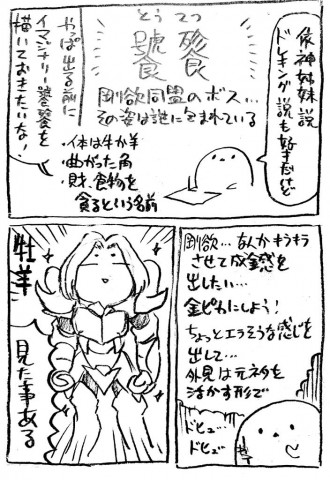 依神姉妹説
ドレキング説も好きだけど
とうてつ
饕餮
剛欲同盟のボス…
その姿は謎に包まれている
・体は牛か羊
・曲がった角
・財、食物を
貪るという名前
やっぱ出る前に
イマジナリー饕餮を
描いておきたいな!
剛欲…なんかキラキラ
させて成金感を
出したい…
金ピカにしよう!
ちょっとエラそうな感じを
出して…
外見は元ネタを
活かす形で
ドヒュ…
ドヒュ…
牡羊
見た事ある